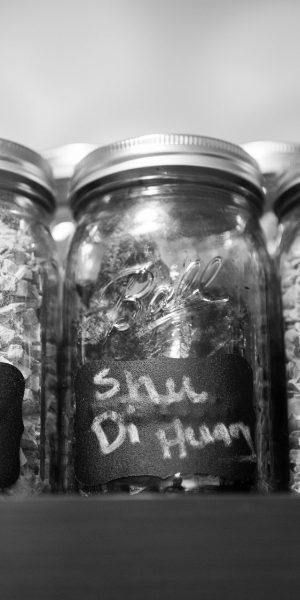 Ball
Shu
Di Huang